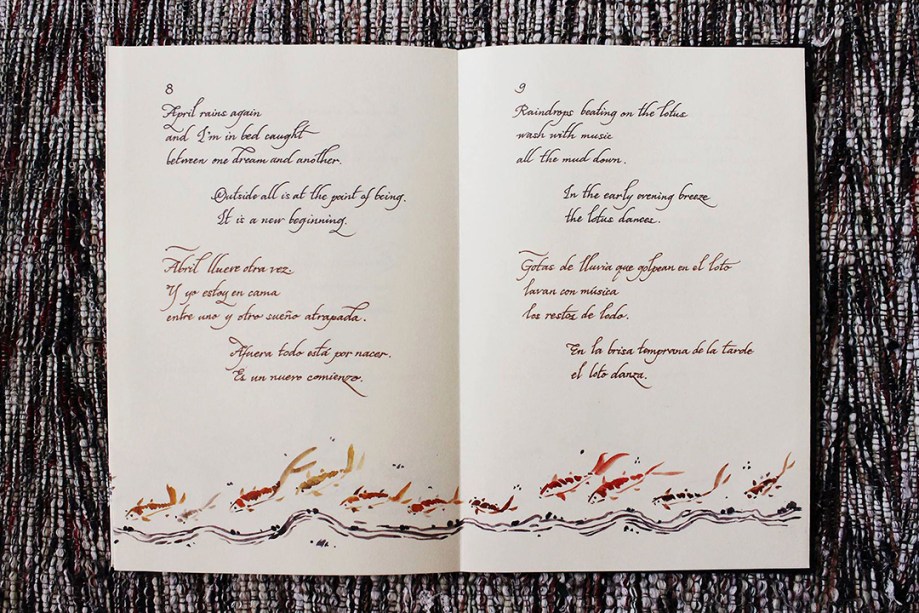 8
April rains again
and I'm in bed caught
between one dream and another.
Outside all is at the point of being.
It is a new beginning.
Abril llueve otra vez.
Y yo estoy en cama
entre uno y otro sueño atrapada.
Afuera todo está por nacer.
Es un nuevo comienzo.
9
Raindrops beating on the lotus
wash with music
all the mud down.
In the early evening breeze
the lotus dances.
Gotas de lluvia que golpean en el loto
lavan con música
los restos de lodo.
En la brisa temprana de la tarde
el loto danza.